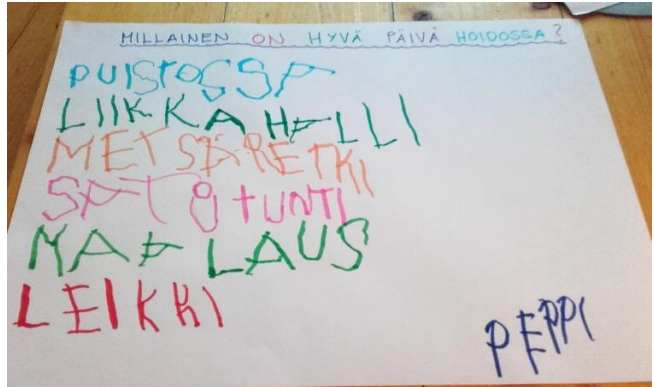 MILLAINEN ON HYVÄ PÄIVÄ HOIDOSSA?
PUISTOSSA
LIIKKAHALLI
METSÄRETKI
SATUTUNTI
MAALAUS
LEIKKI
PEPPI